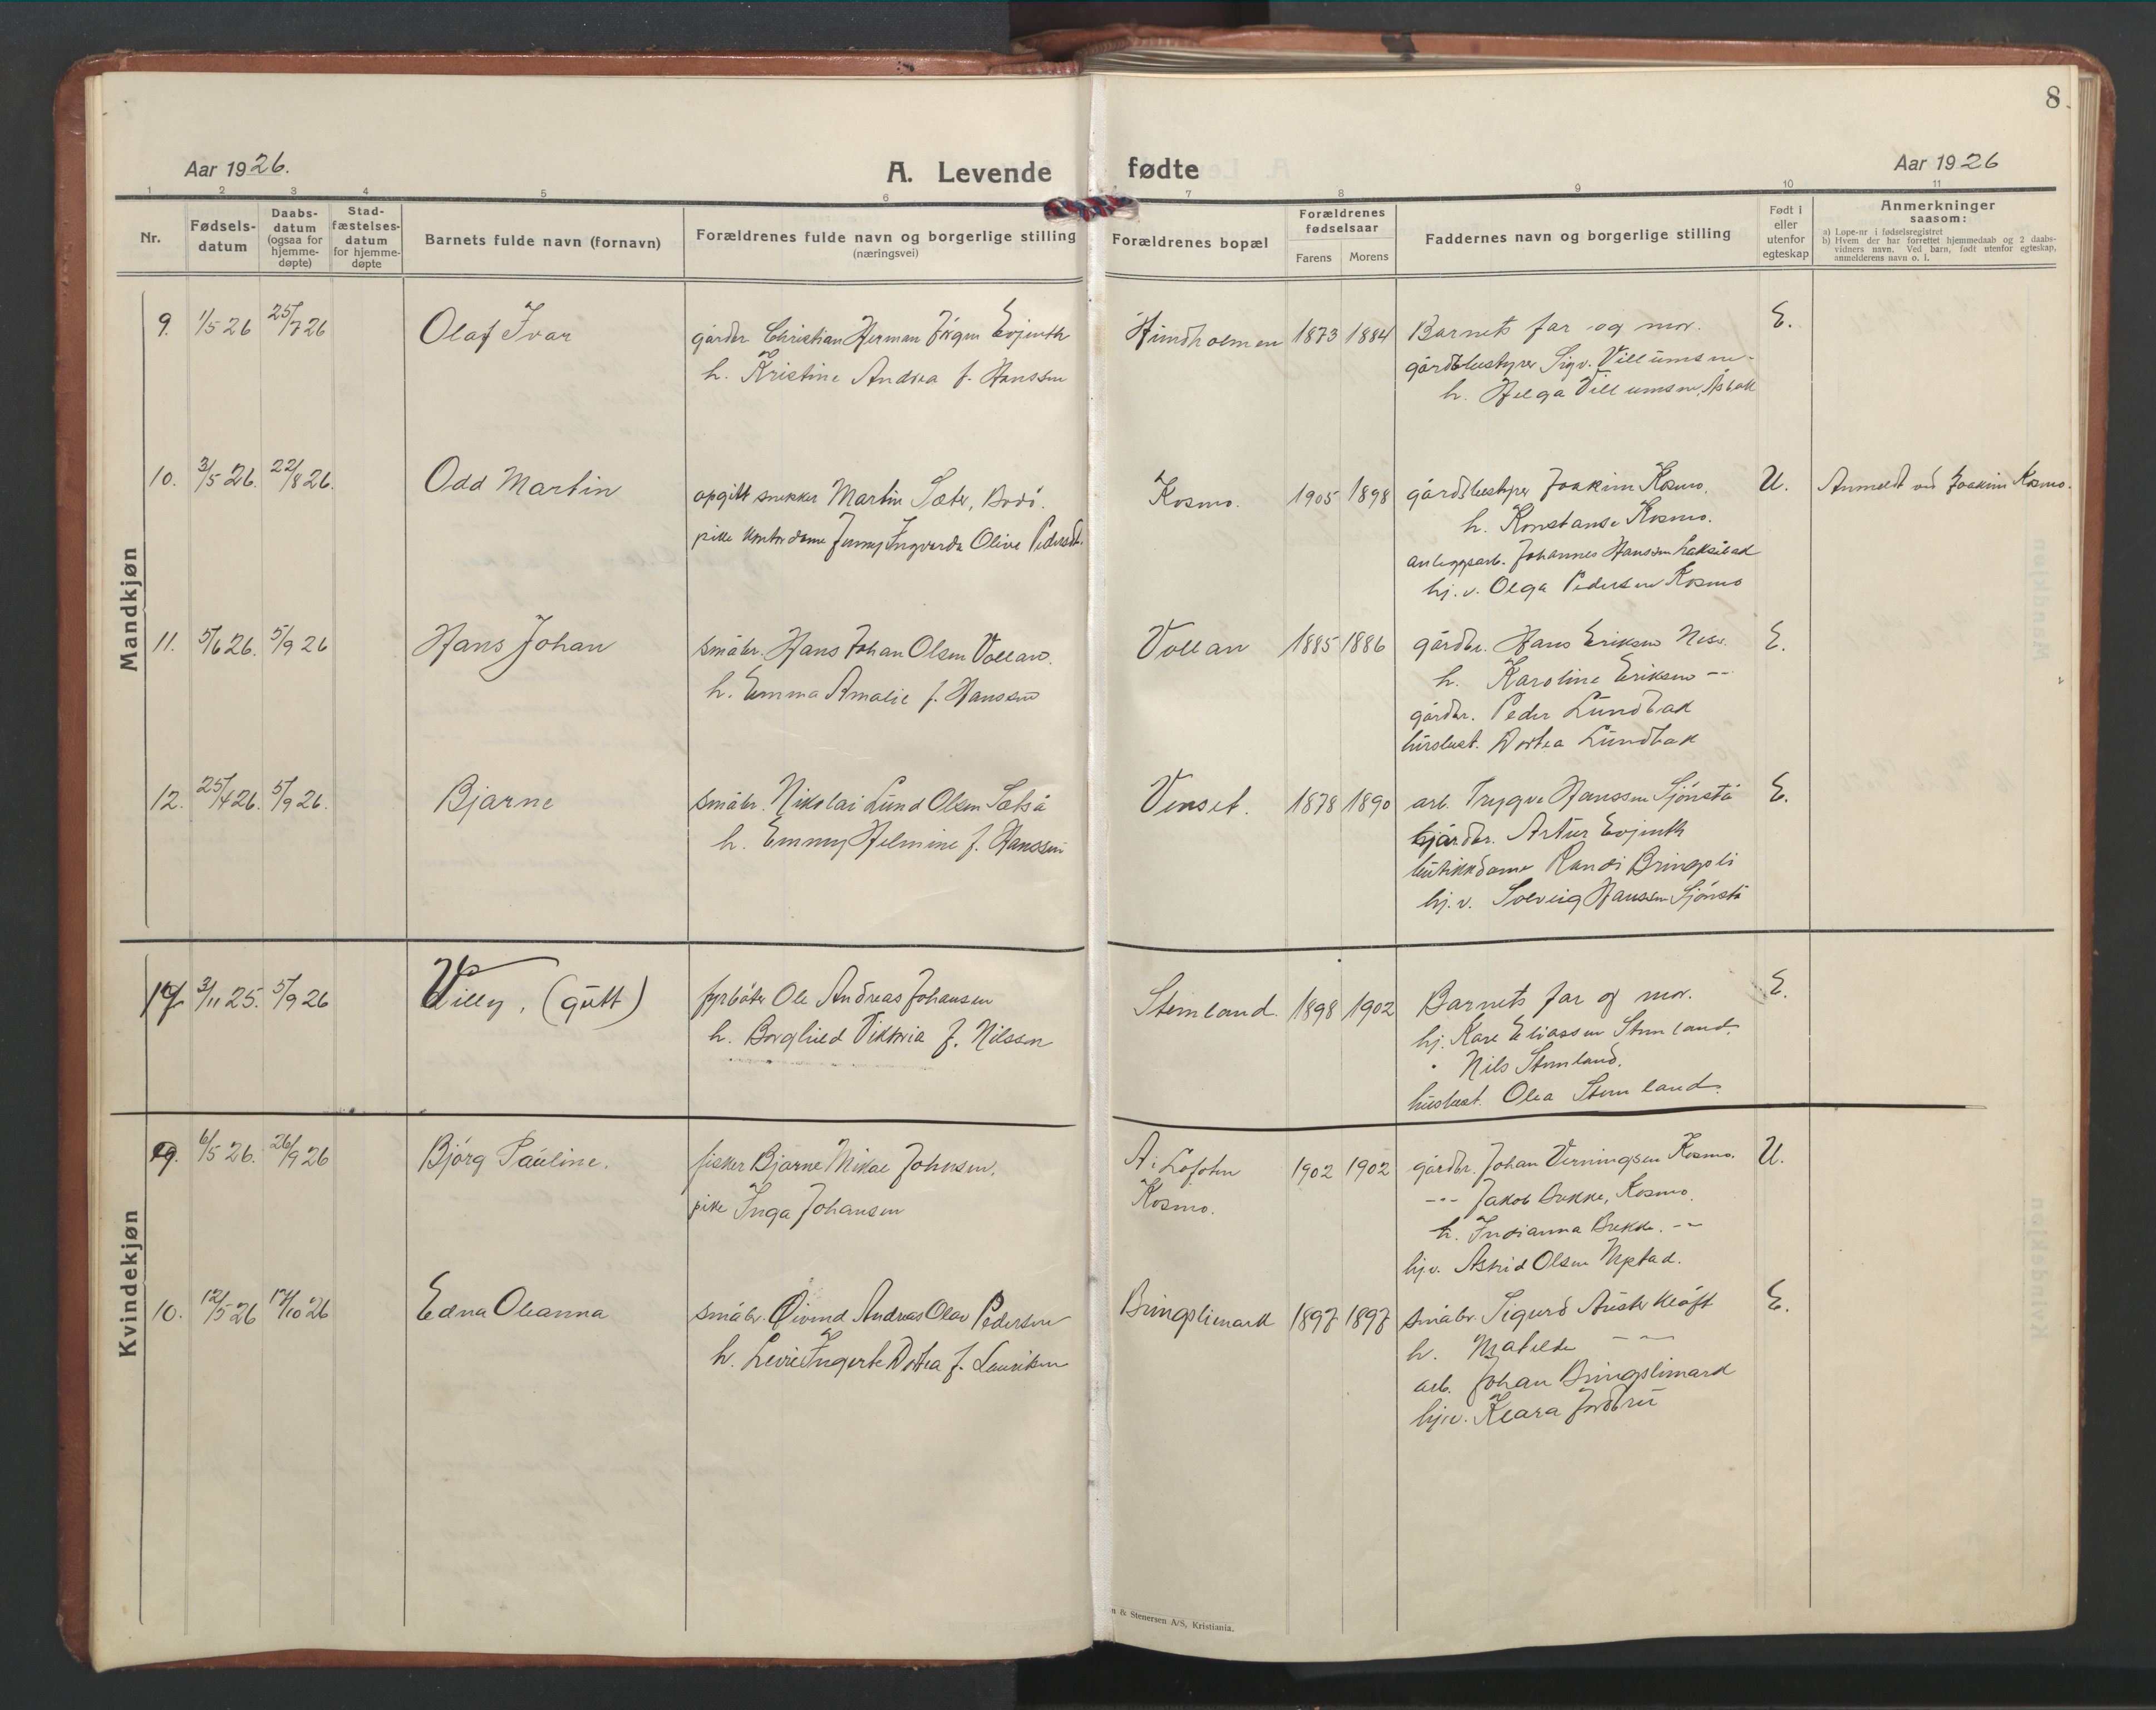 8
Aar 1926.
A. Levende fødte
Aar 1926
1 2 3 4 5 6 7 8 9 10 11
Nr.
Fødsels-
datum
Daabs-
datum
(ogsaa for
hjemme-
døpte)
Stad-
fæstelses-
datum
for hjemme-
døpte
Barnets fulde navn (fornavn)
Forældrenes fulde navn og borgerlige stilling
(næringsvei)
Forældrenes bopæl
Forældrenes
fødselsaar
Farens Morens
Faddernes navn og borgerlige stilling
Født i
eller
utenfor
egteskap
Anmerkninger
saasom:
a) Løpe-nr i fødselsregistret
b) Hvem der har forrettet hjemmedaab og 2 daabs-
vidners navn. Ved barn, født utenfor egteskap,
anmelderens navn o. l.
Mandkjøn
9. 1/5 26 25/7 26 Olaf Ivar
gårdbr. Christian Herman Jörgen Evjenth
h. Kristine Andrea f. Hanssen
Hundholmen 1873 1884
Barnets far og mor.
gårdsbestyrer Sigv. Villumsen
h. Helga Villumsen,
E.
10. 3/5 26. 22/8 26. Odd Martin
opgitt snekker Martin Sæter, Bodö.
pike kontordame Jenny Ingvarda Olive Pedersdt.
Kosmo. 1905 1898
gårdsbestyrer Joakim Kosmo.
h. Konstanse Kosmo.
anleggsarb. Johannes Hanssen Laksåbad
hj. v. Olga Pedersen Kosmo
U. Anmeldt ved Joakim Kosmo.
11. 5/6 26. 5/9 26 Hans Johan
småbr. Hans Johan Olsen Vollan.
h. Emma Amalie f. Hanssen
Vollan 1885 1886
gårdbr. Hans Eriksen Ness.
h. Karoline Eriksen --
gårdbr. Peder Lundbak
husbest. Dortea Lundbak
E.
12. 25/4 26. 5/9 26. Bjarne
småbr. Nikolai Lund Olsen Setså
h. Emmy Helmine f. Hanssen
Venset. 1878 1890
arb. Trygve Hanssen Sjönstå
gårdbr. Artur Evjenth
butikkdame Randi Bringsli
hj. v. Solveig Hanssen Sjönstå
E.
17. 3/11 25. 5/9 26 Willy, (gutt)
fyrböter Ole Andreas Johansen
h. Borghild Viktoria f. Nilssen
Stemland. 1898 1902
Barnets far og mor.
hj. Kare Eliassen Stemland.
" Nils Stemland.
husbest. Olea Stemland.
E.
Kvindekjøn
9. 6/5 26. 26/9 26 Bjørg Pauline.
fisker Bjarne Mikal Johnsen.
pike Inga Johansen
A i Lofoten
Kosmo.
1902 1902
gårdbr. Johan Verningsen Kosmo.
--- Jakob Bekke, Kosmo.
h. Indianna Bekke. --
hj.v. Astrid Olsen
U.
10. 12/5 26 17/10 26 Edna Oleanna
småbr. Øivind Andreas Olav Pedersen
h. Levie Ingerte Dortea f. Lauritsen
Bringslimark 1897 1897
småbr. Sigurd Auster Klöft
h. Matilde -- --
arb. Johan Bringslimark
hj.v. Klara Jordbru
E.
n & Stenersen A/S, Kristiania.